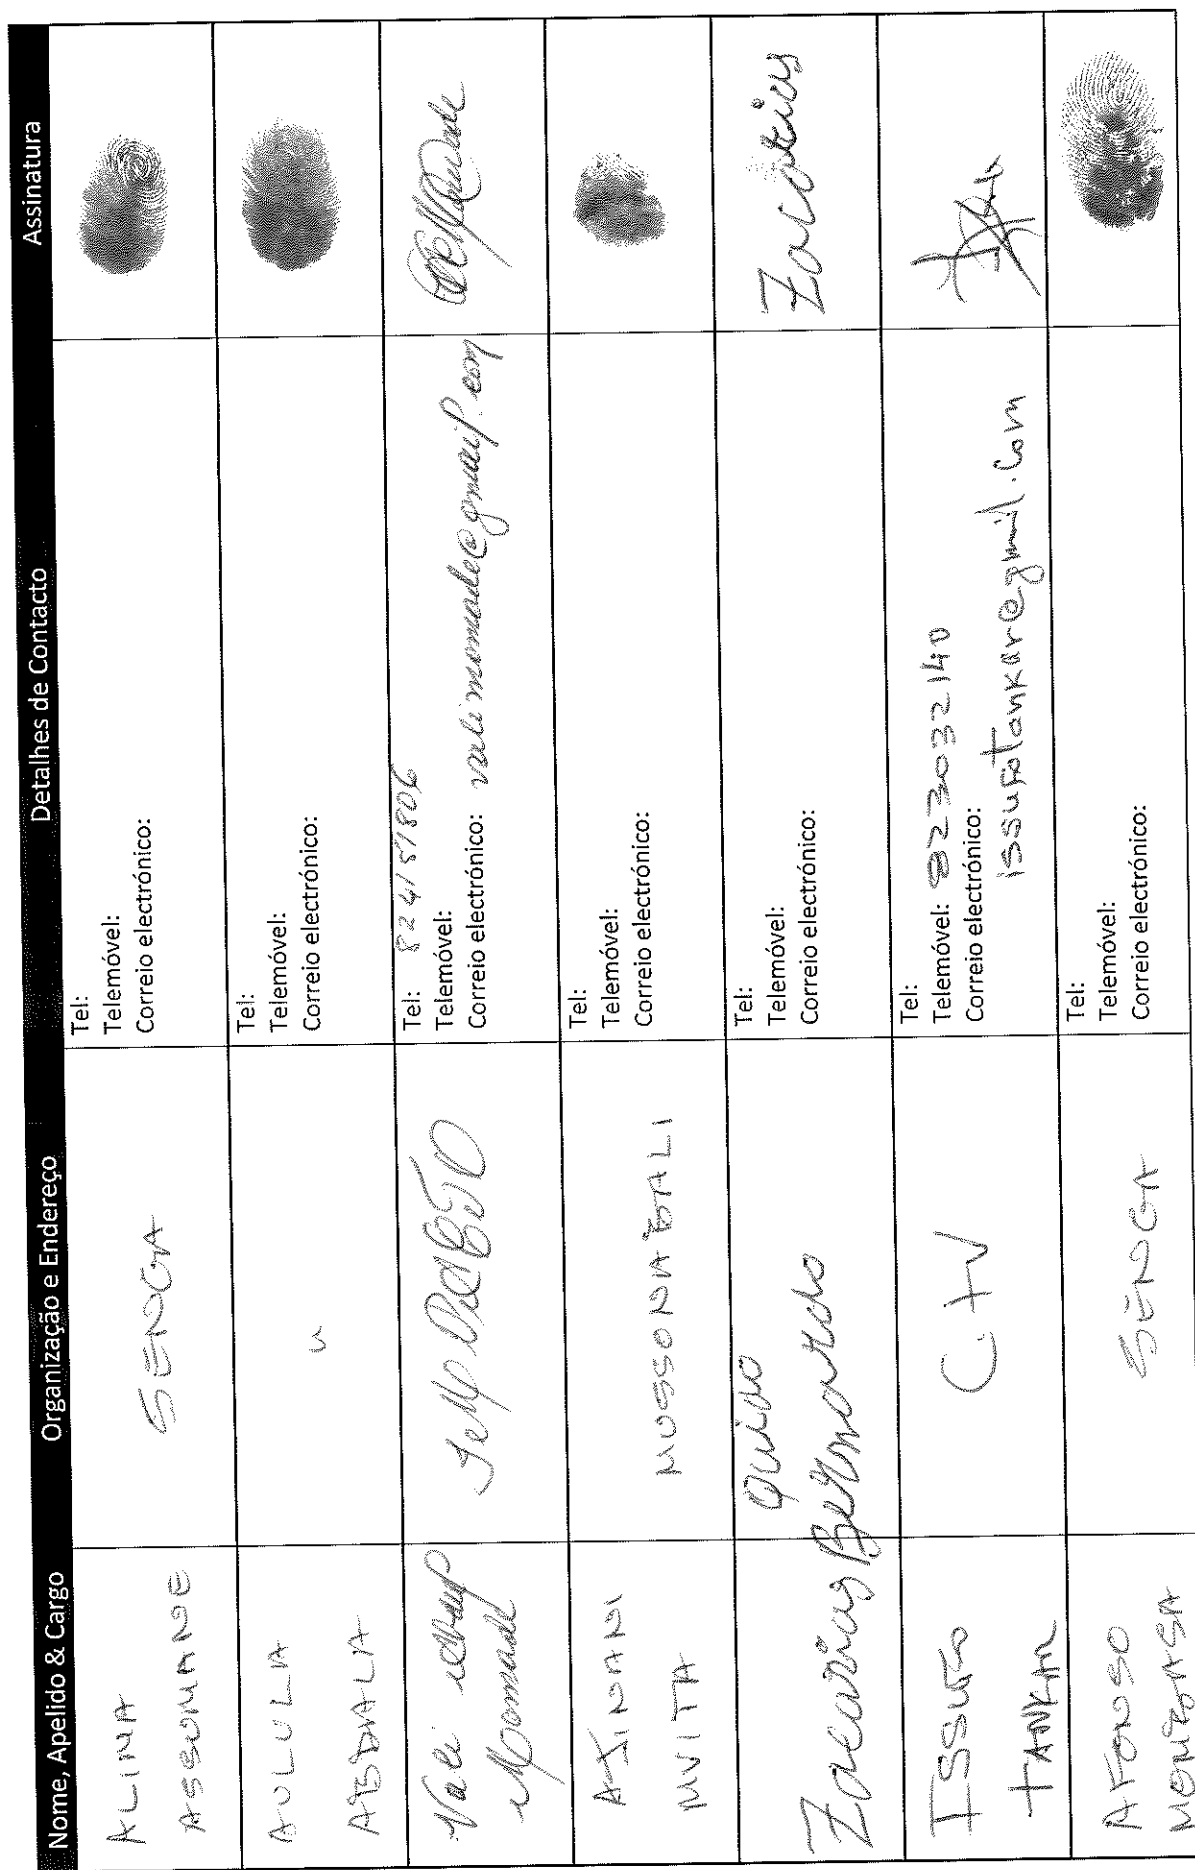 Nome, Apelido & Cargo
Organização e Endereço
Detalhes de Contacto
Assinatura
ALINA
ASSUMANE
SENGA
Tel:
Telemóvel:
Correio electrónico:
AULULIA
ABDALA
Tel:
Telemóvel:
Correio electrónico:
Vali
Momade
Tel: 824151806
Telemóvel:
Correio electrónico: valimomade@gmail.com
AJINANI
MVITA
MUSSONABALI
Tel:
Telemóvel:
Correio electrónico:
Zacarias Bernardo
Quido
Tel:
Telemóvel:
Correio electrónico:
Zacarias
ISSUFO
TANKAR
C.TV
Tel:
Telemóvel: 823032140
Correio electrónico:
issufotankar@gmail.com
AFONSO
MOMBASA
SENGA
Tel:
Telemóvel:
Correio electrónico: